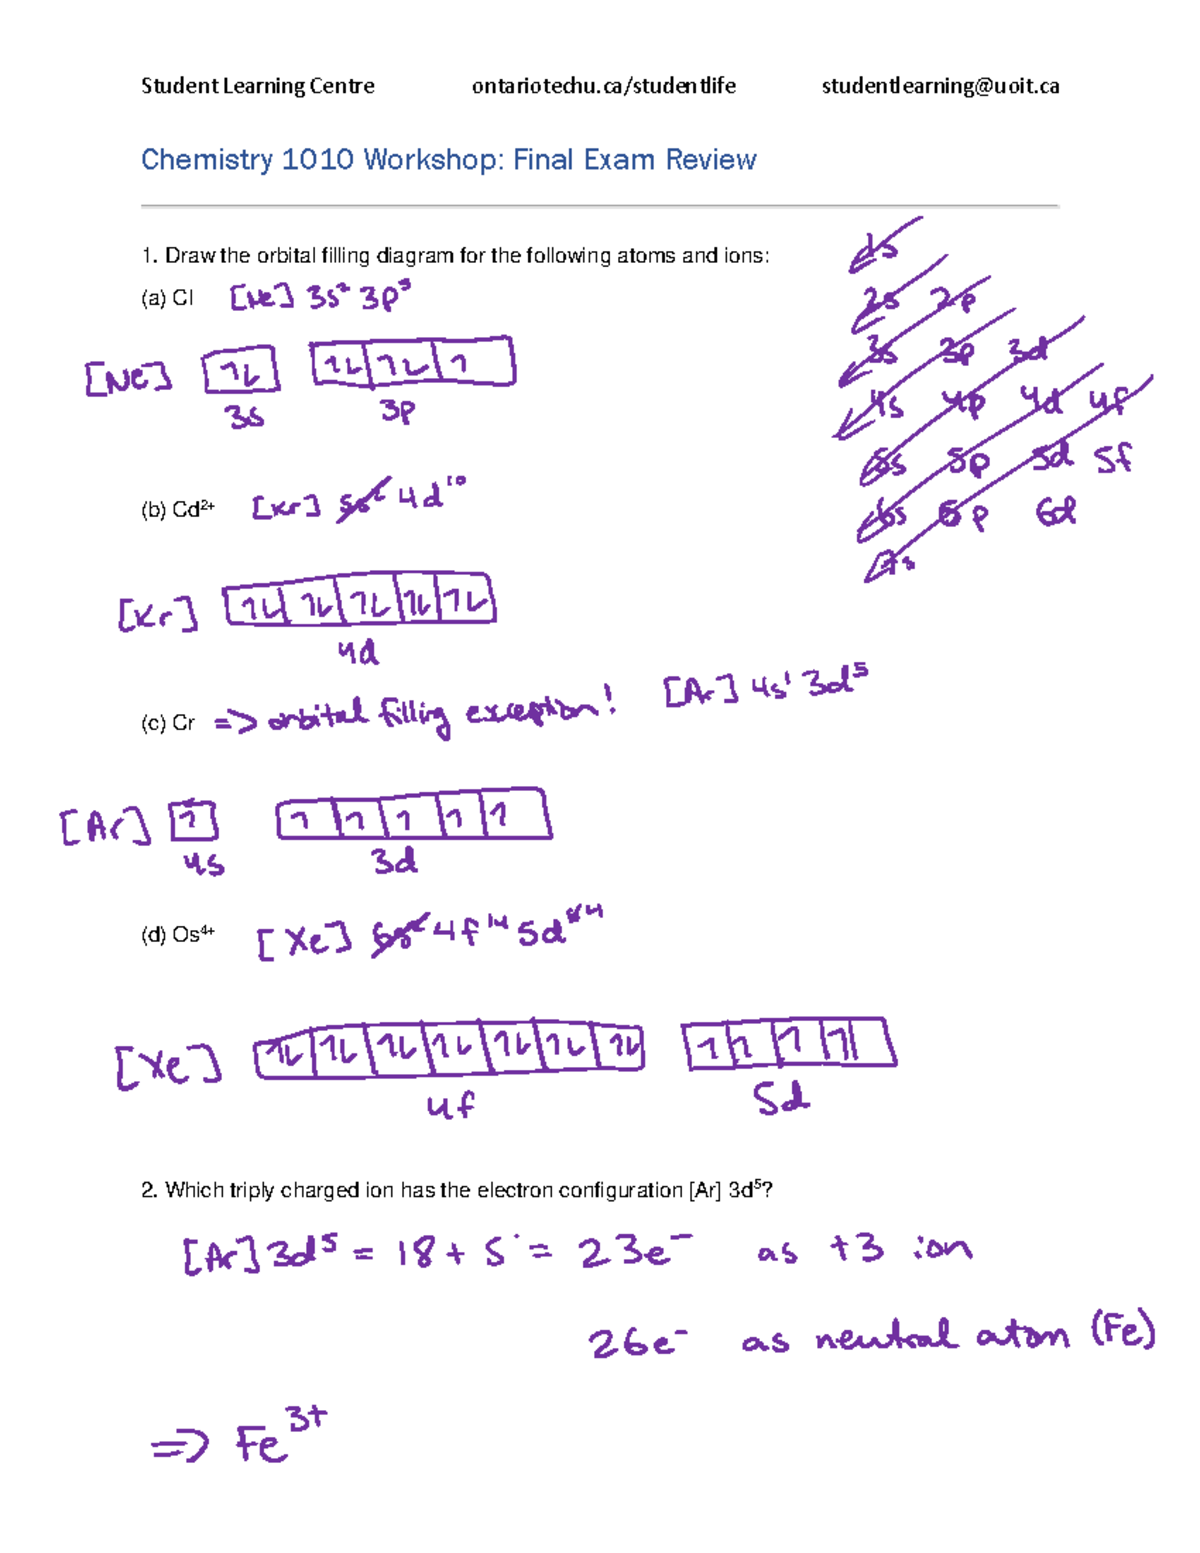 Student Learning Centre ontariotechu.ca/studentlife studentlearning@uoit.ca
Chemistry 1010 Workshop: Final Exam Review
1. Draw the orbital filling diagram for the following atoms and ions:
(a) Cl [Ne] 3s² 3p⁵
[Ne] 1L 1L 1L 1
3s 3p
1s
2s 2p
3s 3p 3d
4s 4p 4d 4f
5s 5p 5d 5f
6s 6p 6d
7s
(b) Cd²⁺ [Kr] 5s² 4d¹⁰
[Kr] 1L 1L 1L 1L 1L
4d
(c) Cr => orbital filling exception! [Ar] 4s¹ 3d⁵
[Ar] 1 1 1 1 1 1
4s 3d
(d) Os⁴⁺ [Xe] 6s² 4f¹⁴ 5d⁴
[Xe] 1L 1L 1L 1L 1L 1L 1L 1 1 1 1
4f 5d
2. Which triply charged ion has the electron configuration [Ar] 3d⁵?
[Ar] 3d⁵ = 18 + 5 = 23e⁻ as +3 ion
26e⁻ as neutral atom (Fe)
=> Fe³⁺